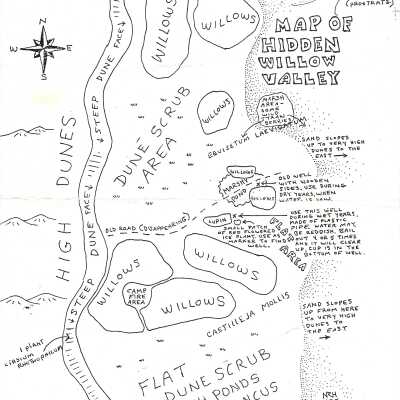 (PROSTRATE)
MAP OF
HIDDEN
WILLOW
VALLEY
N
W
E
S
WILLOWS
WILLOWS
WILLOWS
STEEP DUNE FACE
HIGH DUNES
DUNE SCRUB
AREA
MARSH
AREA-
SOME
WAX
BERRIES
EQUISETUM LAEVIGATUM
SAND SLOPES
UP TO VERY HIGH
DUNES TO THE
EAST →
WILLOWS
MARSHY
POND
WILLOWS
OLD WELL
WITH WOODEN
SIDES, USE DURING
DRY YEARS, WHEN
WATER IS LOW.
OLD ROAD (DISAPPEARING)
LUPIN
SMALL PATCH
OF RED FLOWERED
ICE PLANT. USE AS
MARKER TO FIND
WELL.
USE THIS WELL
DURING WET YEARS.
MADE OF PLASTIC
PIPE. WATER MAY
BE REDDISH. BAIL
OUT 4 OR 5 TIMES
AND IT WILL CLEAR
UP. CUP IS IN THE
BOTTOM OF WELL.
AREA
STEEP DUNE FACE
WILLOWS
WILLOWS
CAMP
FIRE
AREA
WILLOWS
CASTILLEJA MOLLIS
SAND SLOPES
UP FROM HERE
TO VERY HIGH
DUNES TO
THE EAST
→
1 PLANT
CIRSIUM
RHOTHOPHILUM
FLAT
DUNE SCRUB
PONDS